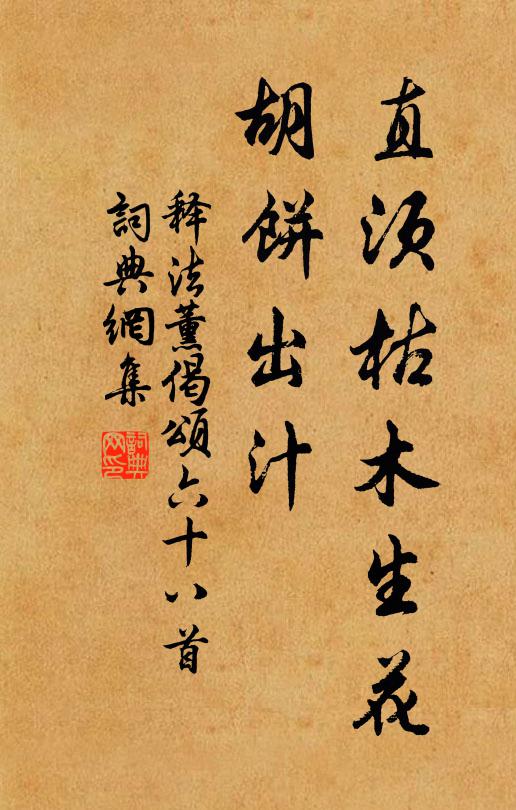 直须枯木生花
胡餅出汁
释法薰偈頌六十八首
詞典網集
詞典网印